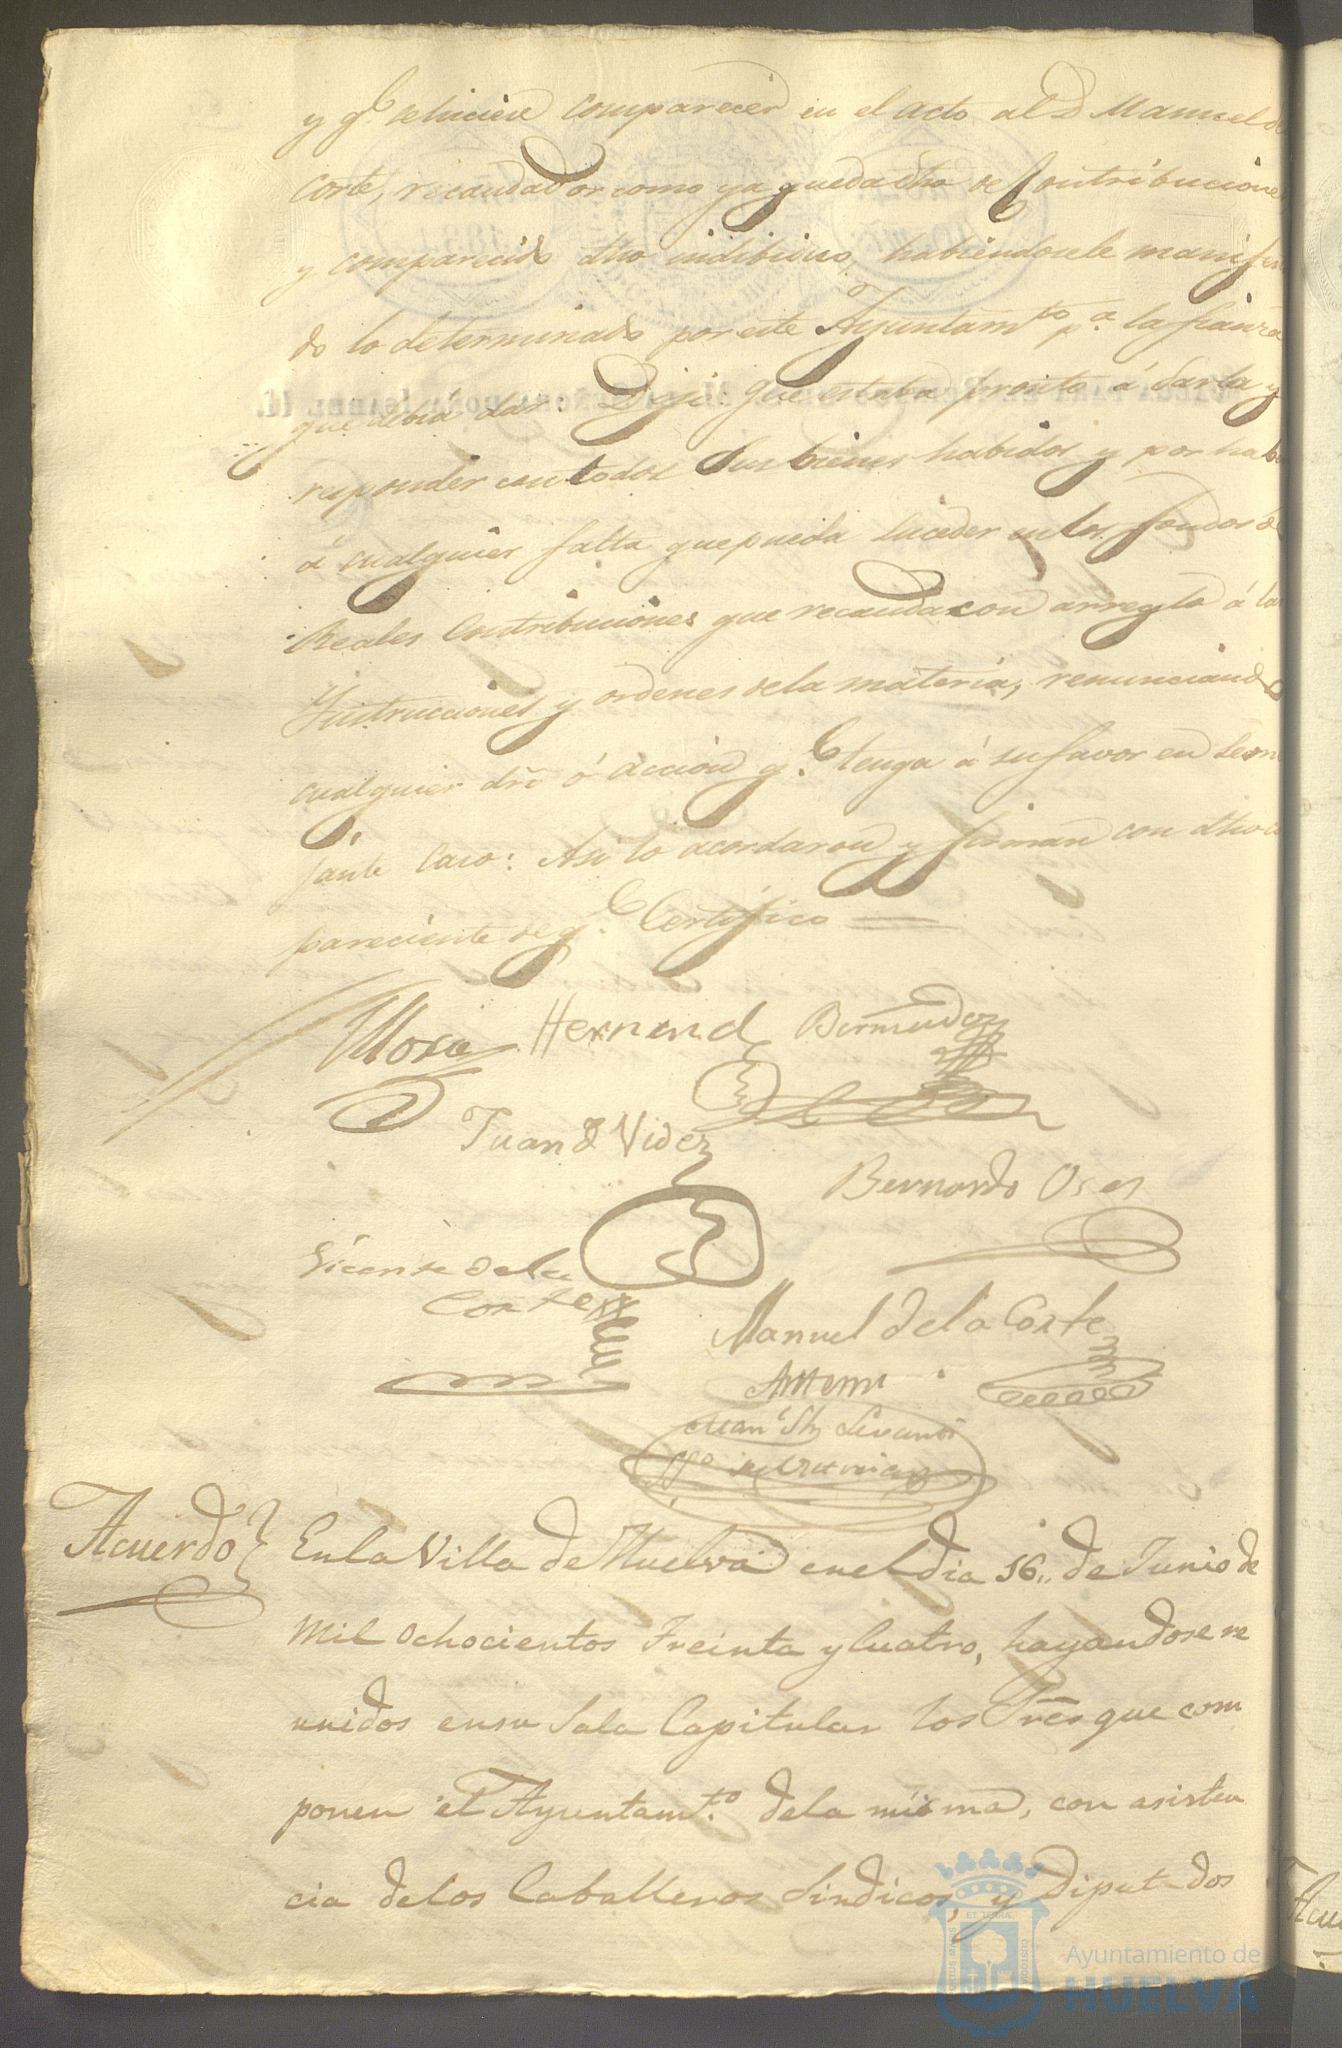 y q.e se hiciese comparecer en el acto al D. Manuel de
Corte, recaudador como ya queda dho de Contribucione
y comparecido dho indibiduo, habiendosele manifes
do lo determinado por este Ayuntam.to p.a la fianza
que debia dar: Dijo: que estaba pronto á darla y
responder con todos sus bienes habidos y por habe
á cualquier falta que pueda suceder en los fondos de
Reales Contribuciones que recauda con arreglo á la
Instrucciones y ordenes de la materia, renunciando
cualquier dro ó acción q.e tenga á su favor en seme
jante Caso: Asi lo acordaron y firman con dho co
pareciente de q.e Certifico
Hernand Bermudez
Juan de Videz
Bernardo Oses
Vicente de la
Corte
Manuel de la Corte
Antemi
Acuerdo
En la Villa de Huelva en el dia 16,, de Junio de
Mil ochocientos treinta y Cuatro, hayandose re
unidos en su Sala Capitular los Sres que com
ponen el Ayuntam.to de la misma, con asisten
cia de los Caballeros Sindicos, y Diputados
Ayuntamiento de
HUELVA